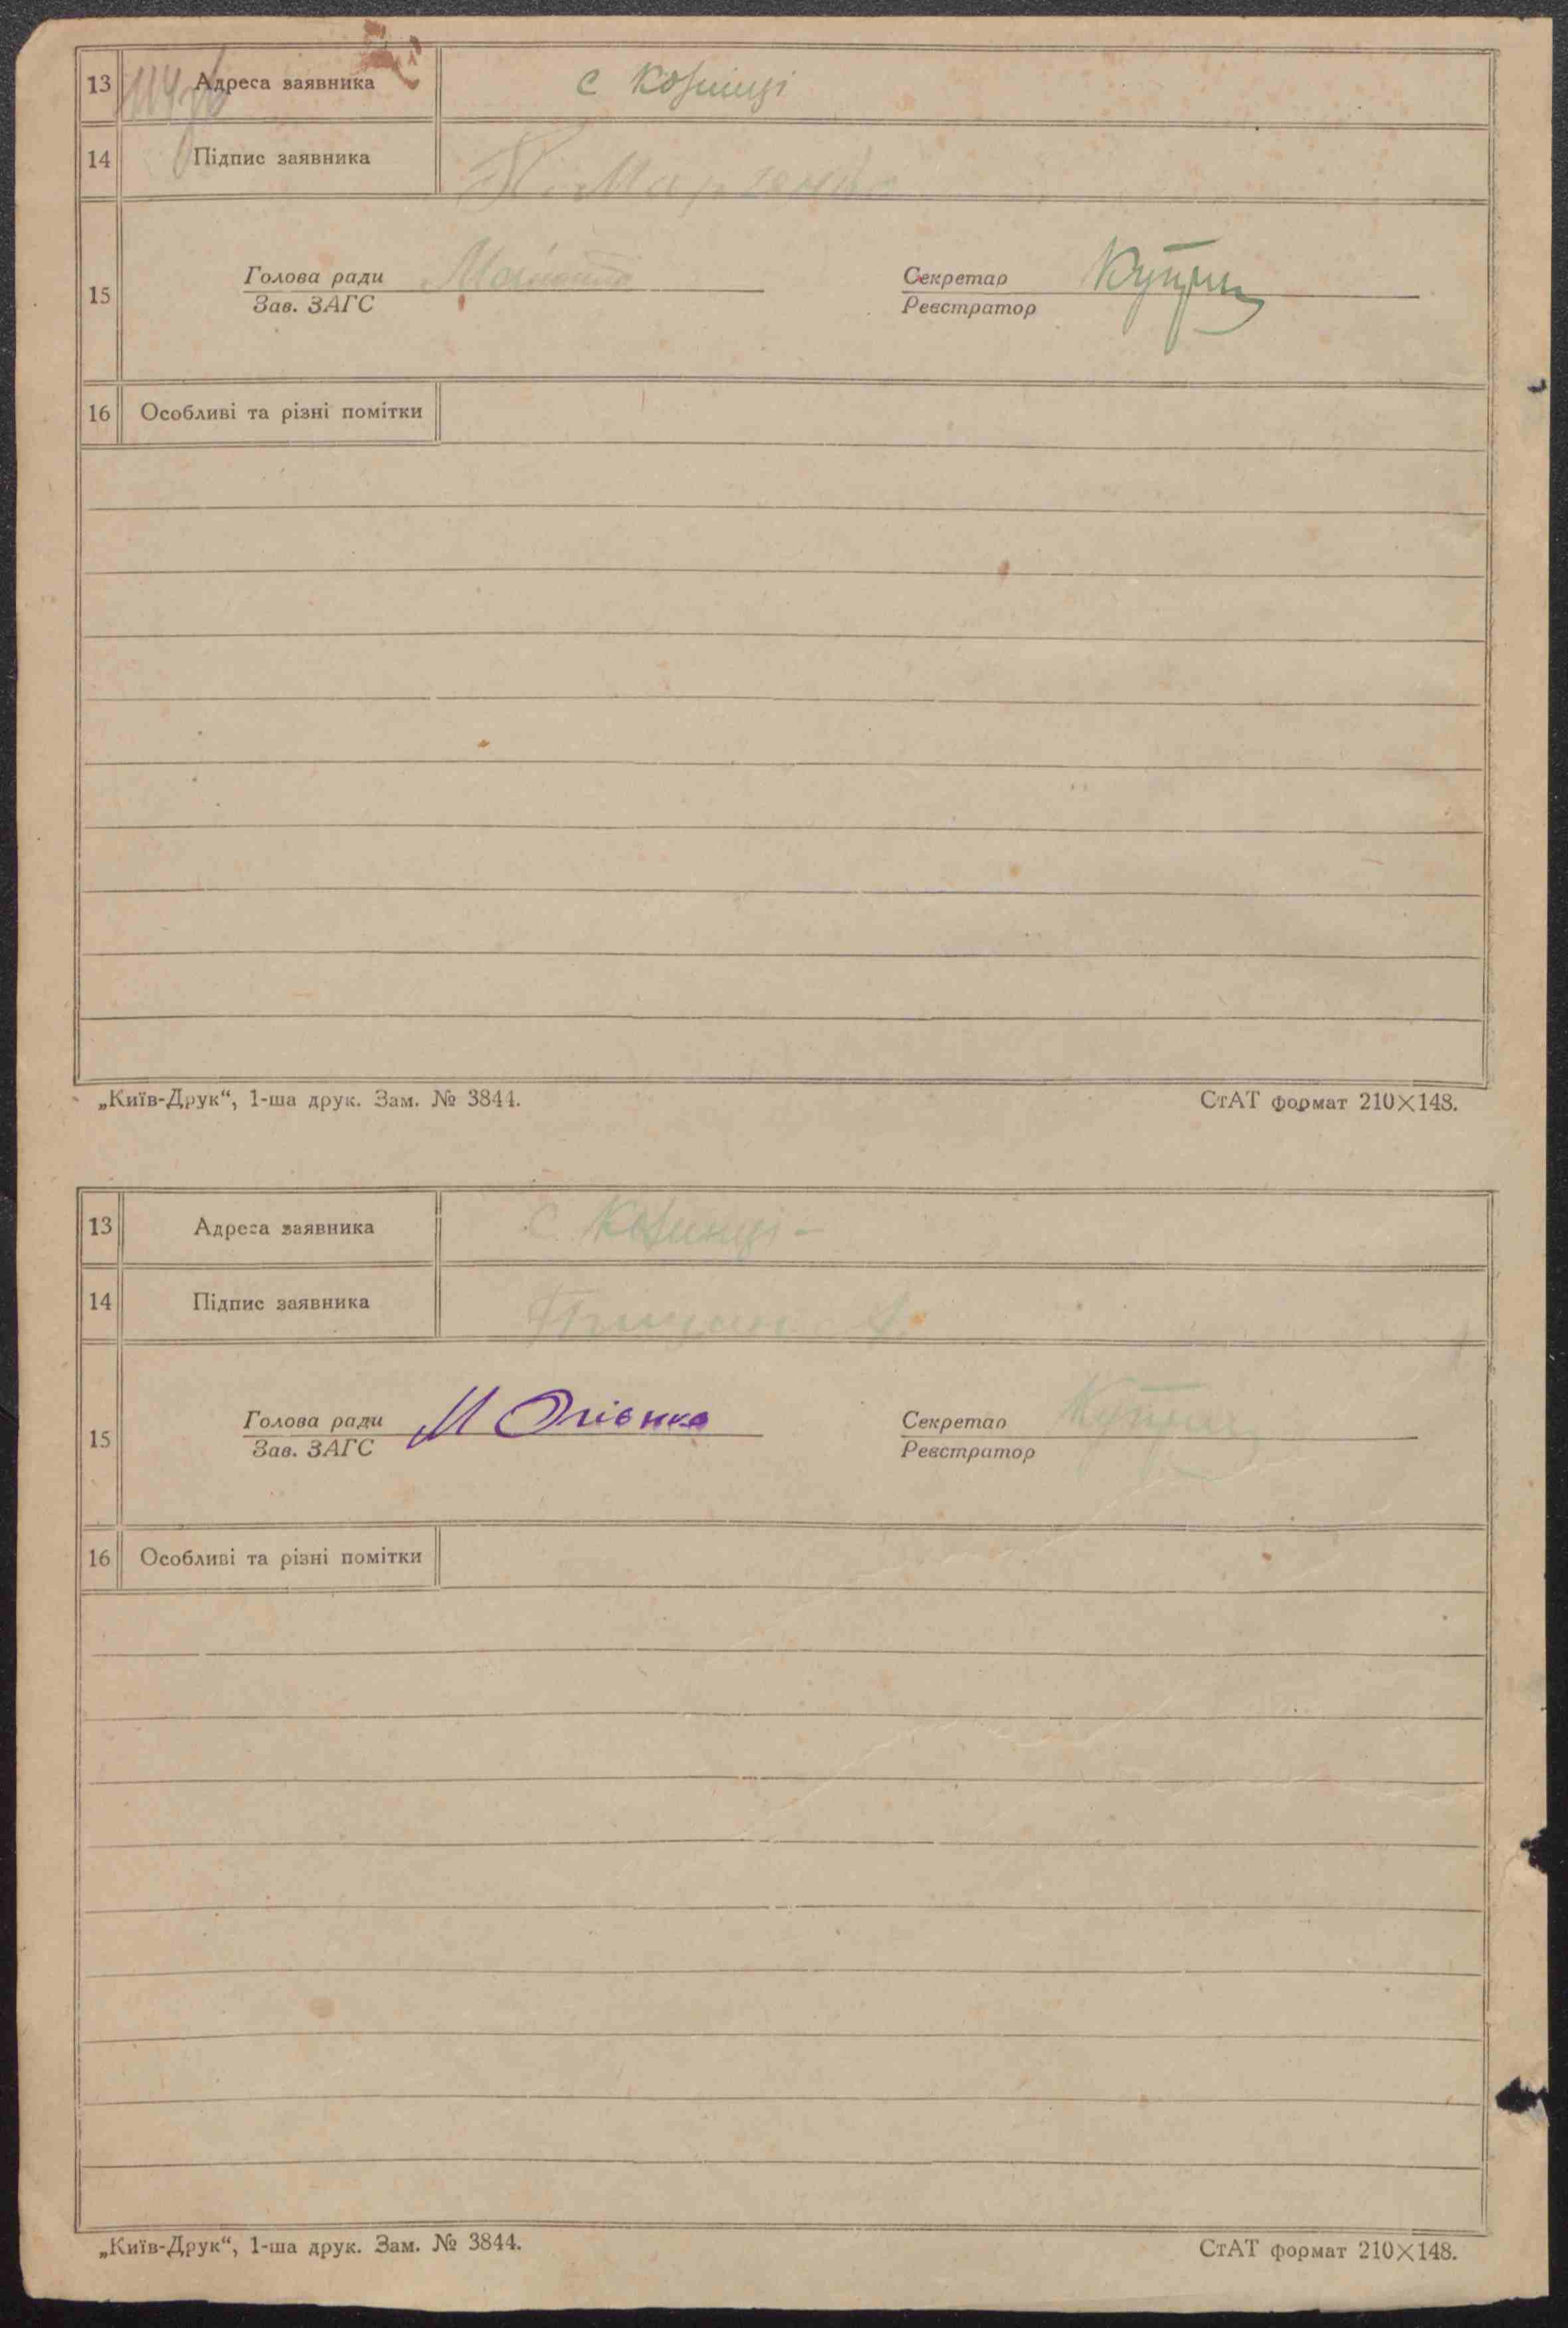 13 Адреса заявника с Козинці
14 Підпис заявника
15 Голова ради Секретар
Зав. ЗАГС Реєстратор
16 Особливі та різні помітки
„Київ-Друк“, 1-ша друк. Зам. № 3844. СтАТ формат 210×148.
13 Адреса заявника с Козинці -
14 Підпис заявника
15 Голова ради Секретар
Зав. ЗАГС Реєстратор
16 Особливі та різні помітки
„Київ-Друк“, 1-ша друк. Зам. № 3844. СтАТ формат 210×148.